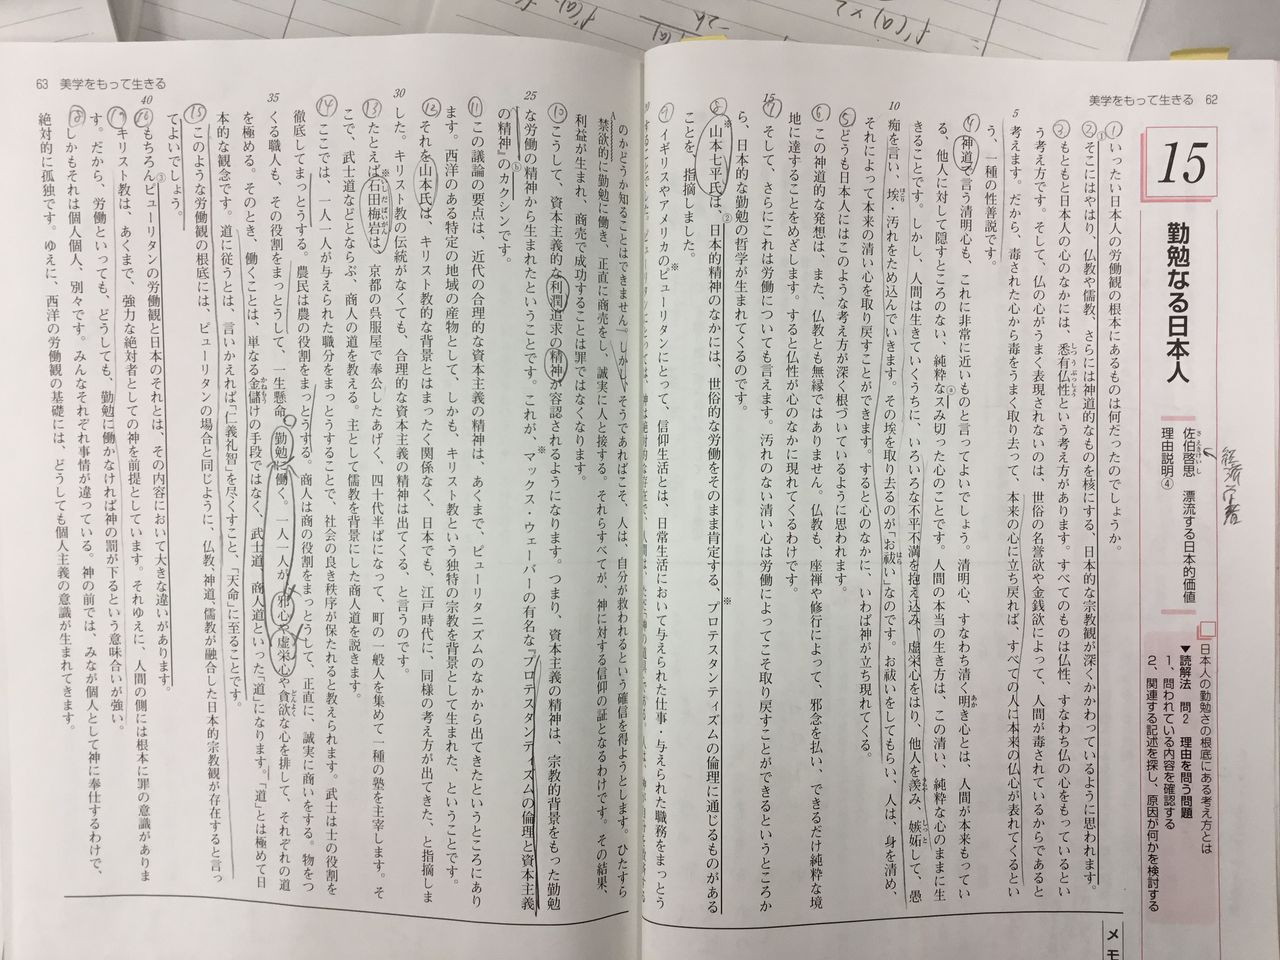 美学をもって生きる 62
15
勤勉なる日本人
佐伯啓思 漂流する日本的価値
理由説明④
経済学者
日本人の勤勉さの根底にある考え方とは
▼読解法 問2 理由を問う問題
1、問われている内容を確認する
2、関連する記述を探し、原因が何かを検討する
メモ
①いったい日本人の労働観の根本にあるものは何だったのでしょうか。
②そこにはやはり、仏教や儒教、さらには神道的なものを核にする、日本的な宗教観が深くかかわっているように思われます。
③もともと日本人の心のなかには、悉有仏性という考え方があります。すべてのものは仏性、すなわち仏の心をもっているとい
う考え方です。そして、仏の心がうまく表現されないのは、世俗の名誉欲や金銭欲によって、人間が毒されているからであると
5 考えます。だから、毒された心から毒をうまく取り去って、本来の心に立ち戻れば、すべての人に本来の仏心が表れてくるとい
う、一種の性善説です。
④神道で言う清明心も、これに非常に近いものと言ってよいでしょう。清明心、すなわち清く明き心とは、人間が本来もってい
る、他人に対して隠すところのない、純粋なスみ切った心のことです。人間の本当の生き方は、この清い、純粋な心のままに生
きることです。しかし、人間は生きていくうちに、いろいろな不平不満を抱え込み、虚栄心をはり、他人を羨み、嫉妬して、愚
10 痴を言い、埃・汚れをため込んでいきます。その埃を取り去るのが「お祓い」なのです。お祓いをしてもらい、人は、身を清め、
それによって本来の清い心を取り戻すことができます。すると心のなかに、いわば神が立ち現れてくる。
⑤どうも日本人にはこのような考え方が深く根づいているように思われます。
⑥この神道的な発想は、また、仏教とも無縁ではありません。仏教も、座禅や修行によって、邪念を払い、できるだけ純粋な境
地に達することをめざします。すると仏性が心のなかに現れてくるわけです。
15 ⑦そして、さらにこれは労働についても言えます。汚れのない清い心は労働によってこそ取り戻すことができるというところか
ら、日本的な勤勉の哲学が生まれてくるのです。
⑧山本七平氏は、日本的精神のなかには、世俗的な労働をそのまま肯定する、プロテスタンティズムの倫理に通じるものがある
ことを、指摘しました。
⑨イギリスやアメリカのピューリタンにとって、信仰生活とは、日常生活において与えられた仕事・与えられた職務をまっとう
63 美学をもって生きる
のかどうか知ることはできません。しかし、そうであればこそ、人は、自分が救われるという確信を得ようとします。ひたすら
禁欲的に勤勉に働き、正直に商売をし、誠実に人と接する。それらすべてが、神に対する信仰の証となるわけです。その結果、
利益が生まれ、商売で成功することは罪ではなくなります。
⑩こうして、資本主義的な利潤追求の精神が容認されるようになります。つまり、資本主義の精神は、宗教的背景をもった勤勉
25 な労働の精神から生まれたということです。これが、マックス・ウェーバーの有名な『プロテスタンティズムの倫理と資本主義
の精神』のカクシンです。
⑪この議論の要点は、近代の合理的な資本主義の精神は、あくまで、ピューリタニズムのなかから出てきたというところにあり
ます。西洋のある特定の地域の産物として、しかも、キリスト教という独特の宗教を背景として生まれた、ということです。
⑫それを山本氏は、キリスト教的な背景とはまったく関係なく、日本でも、江戸時代に、同様の考え方が出てきた、と指摘しま
30 した。キリスト教の伝統がなくても、合理的な資本主義の精神は出てくる、と言うのです。
⑬たとえば石田梅岩は、京都の呉服屋で奉公したあげく、四十代半ばになって、町の一般人を集めて一種の塾を主宰します。そ
こで、武士道などとならぶ、商人の道を教える。主として儒教を背景にした商人道を説きます。
⑭ここでは、一人一人が与えられた職分をまっとうすることで、社会の良き秩序が保たれると教えられます。武士は士の役割を
徹底してまっとうする。農民は農の役割をまっとうする。商人は商の役割をまっとうして、正直に、誠実に商いをする。物をつ
35 くる職人も、その役割をまっとうして、一生懸命、勤勉に働く。一人一人が、邪心や虚栄心や貪欲な心を排して、それぞれの道
を極める。そのとき、働くことは、単なる金儲けの手段ではなく、武士道、商人道といった「道」になります。「道」とは極めて日
本的な観念です。道に従うとは、言いかえれば「仁義礼智」を尽くすこと、「天命」に至ることです。
⑮このような労働観の根底には、ピューリタンの場合と同じように、仏教、神道、儒教が融合した日本的宗教観が存在すると言っ
てよいでしょう。
40 ⑯もちろんピューリタンの労働観と日本のそれとは、その内容において大きな違いがあります。
⑰キリスト教は、あくまで、強力な絶対者としての神を前提としています。それゆえに、人間の側には根本に罪の意識がありま
す。だから、労働といっても、どうしても、勤勉に働かなければ神の罰が下るという意味合いが強い。
⑱しかもそれは個人個人、別々です。みんなそれぞれ事情が違っている。神の前では、みんなが個人として神に奉仕するわけで、
絶対的に孤独です。ゆえに、西洋の労働観の基礎には、どうしても個人主義の意識が生まれてきます。